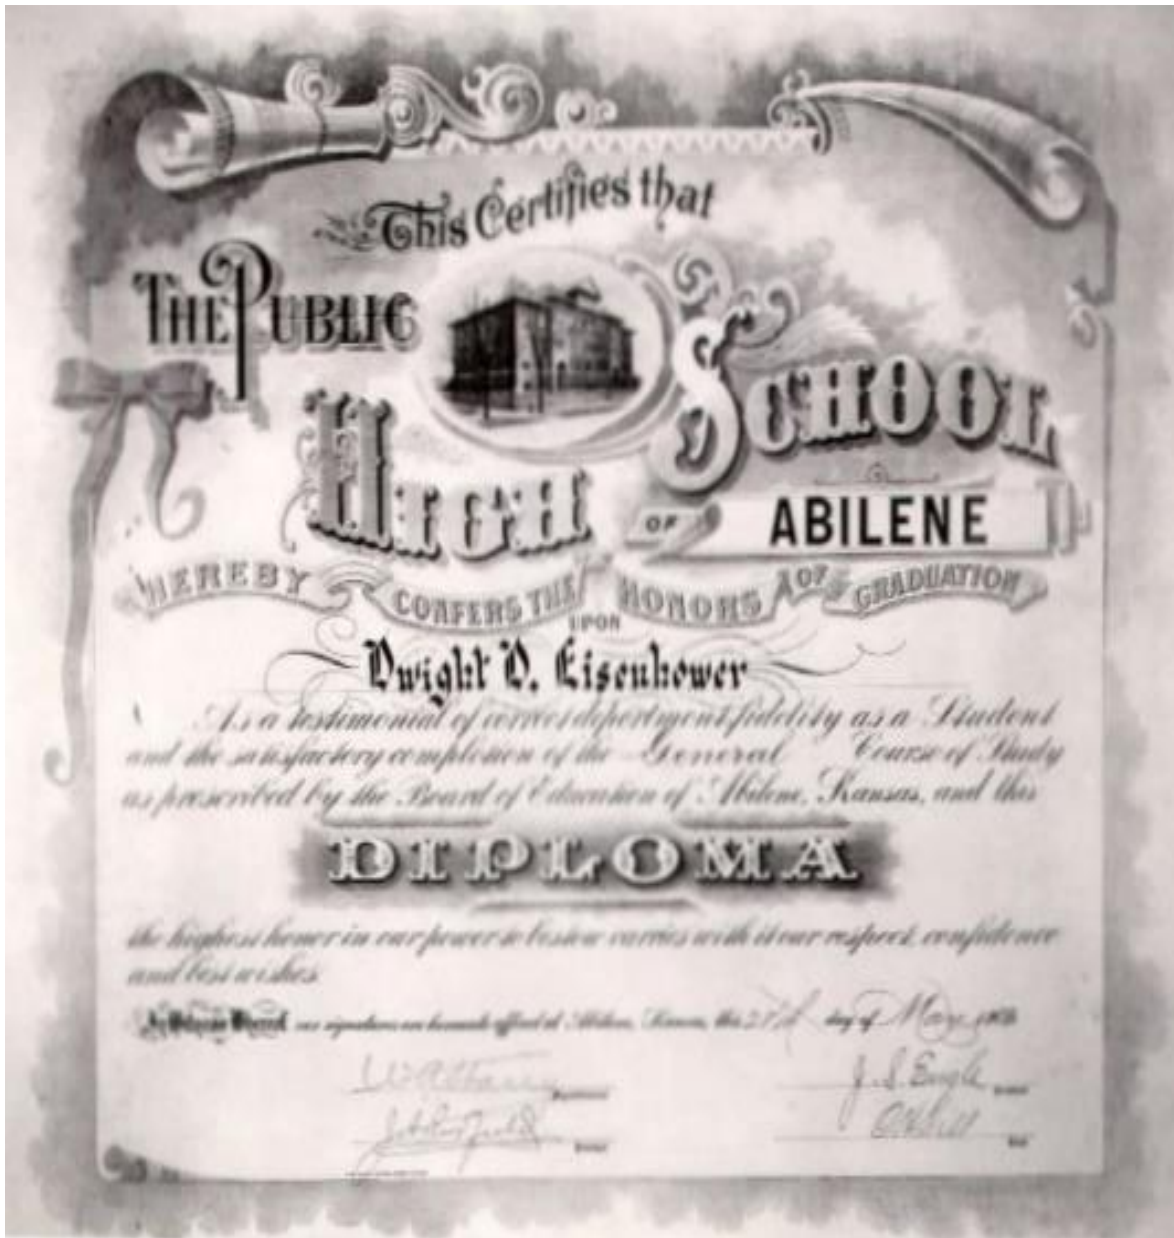 This Certifies that
THE PUBLIC
HIGH SCHOOL
OF ABILENE
HEREBY CONFERS THE HONORS OF GRADUATION
UPON
Dwight D. Eisenhower
As a testimonial of correct deportment fidelity as a Student
and the satisfactory completion of the General Course of Study
as prescribed by the Board of Education of Abilene, Kansas, and this
DIPLOMA
the highest honor in our power to bestow carries with it our respect, confidence
and best wishes
In Witness Whereof, our signatures are hereunto affixed at Abilene, Kansas, this day of May
J. S. Engle